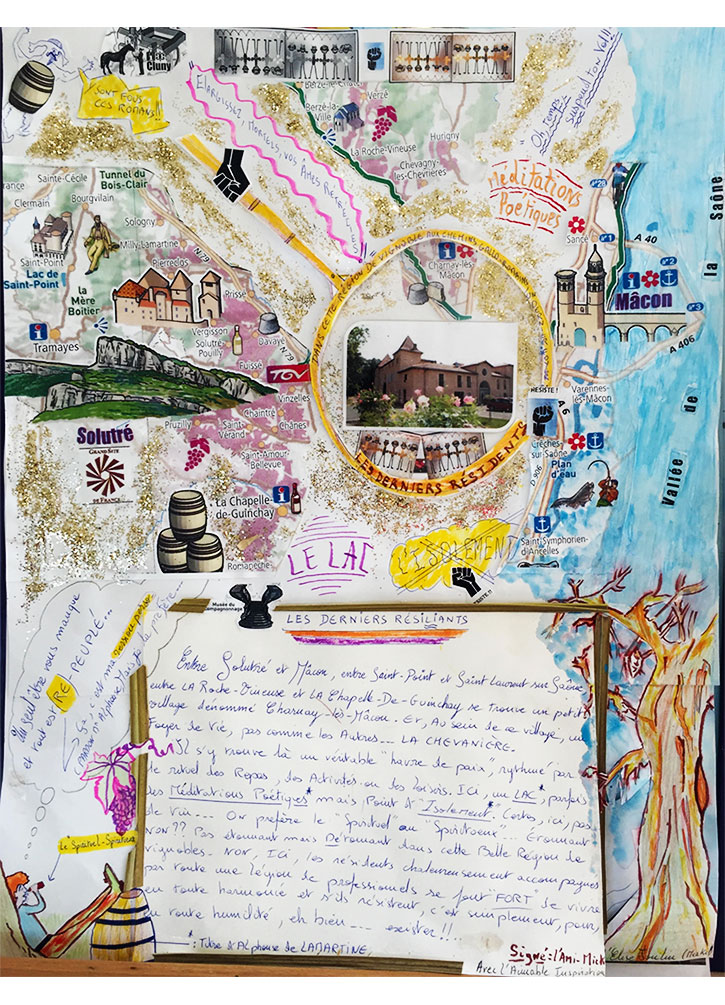 Cluny
ILS
SONT FOUS
CES ROMANS!!
ELARGISSEZ, MORTELS, VOS ÂMES REBELLES
"Oh Temps
suspend ton Vol!!
Berzé-le-Châtel
Berzé-la-
Ville
Verzé
Hurigny
La Roche-Vineuse
Chevagny-
les-Chevrières
Méditations
Poétiques
Sainte-Cécile
Tunnel du
Bois-Clair
Bourgvilain
Clermain
Sologny
Saint-Point
Milly-Lamartine
Lac de
Saint-Point
Pierreclos
N79
la
Mère
Boitier
Prissé
Tramayes
Vergisson
Solutré
Pouilly
Davayé
N79
Fuissé
TGV
Vinzelles
Chaintré
Pruzilly
Saint-
Vérand
Chânes
Saint-Amour
Bellevue
Solutré
GRAND SITE
DE FRANCE
La Chapelle-
de-Guinchay
Romanèche
DANS CETTE RÉGION DE VIGNOBLE AUX CHEMINS GALLO-ROMAINS
Charnay-lès-
Mâcon
LES DERNIERS RÉSIDENTS
Sancé
N°28
N°1
A 40
N°2
Mâcon
N°3
A 406
la Saône
Vallée de
Varennes-
lès-Mâcon
RÉSISTE !
A 6
Crêches-
sur-Saône
D 906
Plan
d'eau
Saint-Symphorien-
d'Ancelles
LE LAC
L'ISOLEMENT
Musée du
Compagnonnage
LES DERNIERS RÉSILIANTS
Un seul être vous manque
et tout est RE PEUPLÉ...
Le Spirituel-Spiritueux
Entre Solutré et Mâcon, entre Saint-Point et Saint Laurent sur Saône,
entre LA Roche-Vineuse et LA Chapelle-De-Guinchay se trouve un petit
village dénommé Charnay-lès-Mâcon. Et, Au sein de ce village, un
Foyer de Vie, pas comme les Autres... LA CHEVANIÈRE.
Il s'y trouve là un véritable "havre de paix", rythmé par
le rituel des Repas, des Activités ou des loisirs. Ici, un LAC*, parfois
des Méditations Poétiques* mais Point d'"Isolement"* Certes, ici, pas
de Vin... On préfère le "Spirituel" au "Spiritueux"... Étonnant
NON?? Pas étonnant mais Détonnant dans cette Belle Région de
vignobles. NON, Ici, les résidents chaleureusement accompagnés
par toute une légion de professionnels se font "FORT" de vivre
en toute harmonie et s'ils résistent, c'est simplement, pour,
en toute humilité, eh bien... exister!!.
* : Titre d'Alphonse de LAMARTINE.
Signé = l'Ami-Mick
Avec l'Aimable Inspiration